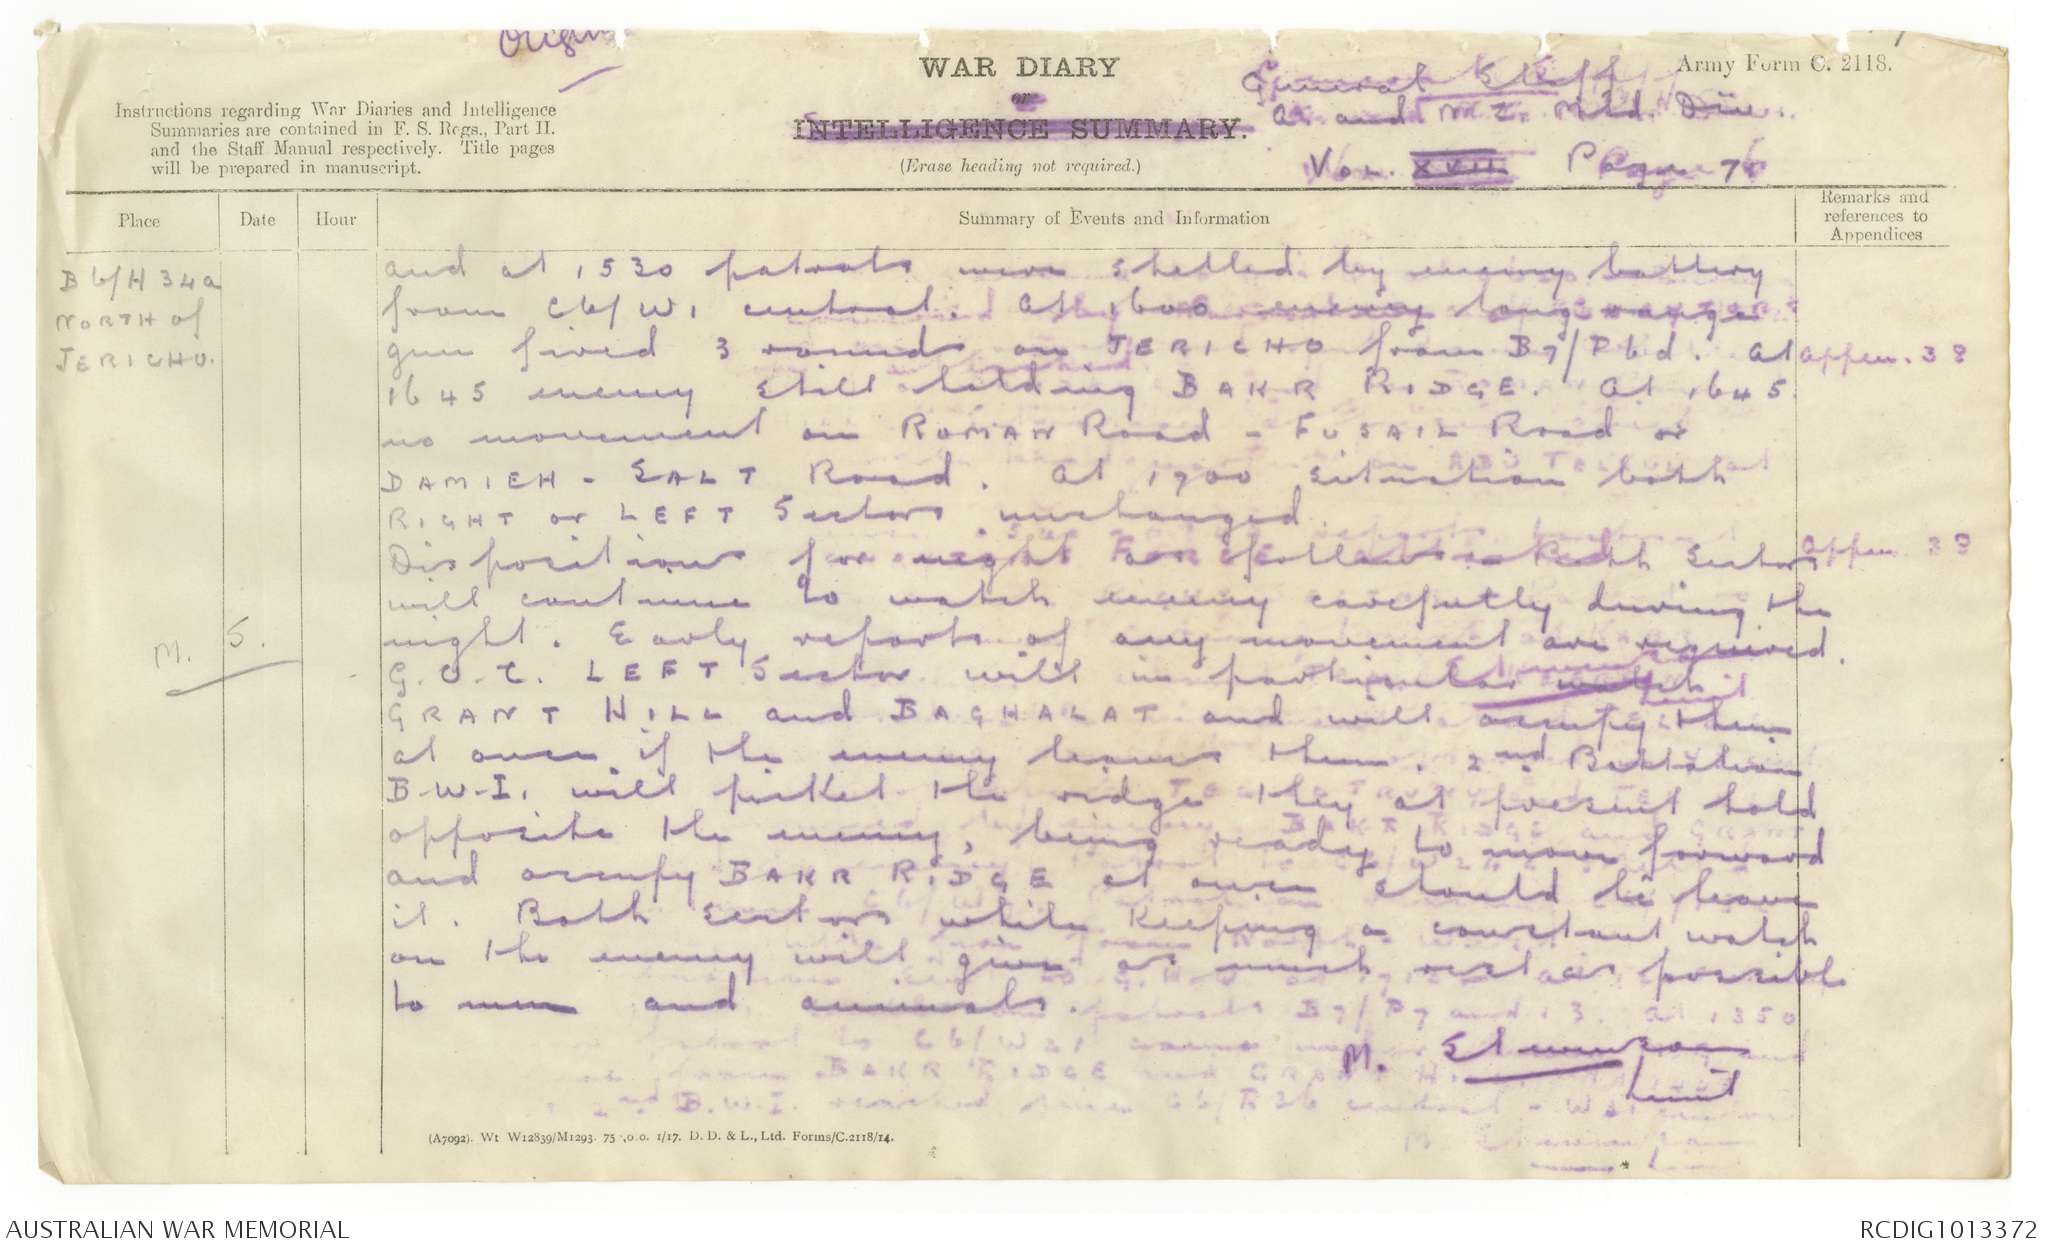 Origin
WAR DIARY
or
INTELLIGENCE SUMMARY.
(Erase heading not required.)
Army Form C. 2118.
General Staff
A. and N.Z. Mtd. Div.
Vol. XVII. Page 76
Instructions regarding War Diaries and Intelligence
Summaries are contained in F. S. Regs., Part II.
and the Staff Manual respectively. Title pages
will be prepared in manuscript.
Place
Date
Hour
Summary of Events and Information
Remarks and
references to
Appendices
B6/H34a
NORTH of
JERICHO.
M. 5.
and at 1530 patrols were shelled by enemy battery
from C6/W1 central. At 1600 enemy long range
gun fired 3 rounds on JERICHO from B7/P6d. At
Appen. 38
1645 enemy still holding BAKR RIDGE. At 1645
no movement on ROMAN Road - FUSAIL Road or
DAMIEH - SALT Road. At 1700 situation both
RIGHT or LEFT Sectors unchanged.
Dispositions for night as follows - Both Sectors
Appen 38
will continue to watch enemy carefully during the
night. Early reports of any movement are required.
G.O.C. LEFT Sector will in particular watch
GRANT HILL and BAGHALAT and will occupy them
at once if the enemy leaves them. 2nd Battalion
B.W.I. will picket the ridge they at present hold
opposite the enemy, being ready to move forward
and occupy BAKR RIDGE at once should he leave
it. Both Sectors while keeping a constant watch
on the enemy will give as much rest as possible
to men and animals.
M. Stevenson
Lieut
(A7092). Wt W12839/M1293. 75 ,0.0. 1/17. D. D. & L., Ltd. Forms/C.2118/14.
AUSTRALIAN WAR MEMORIAL
RCDIG1013372